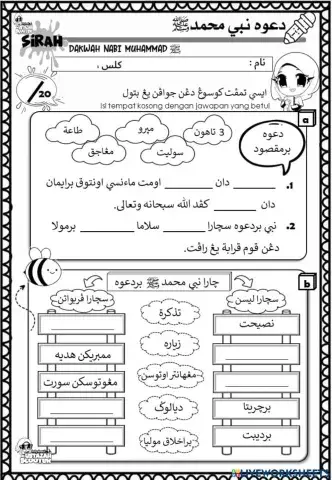 دعوه نبي محمد ﷺ
SIRAH
DAKWAH NABI MUHAMMAD ﷺ
نام :
كلس :
20
ايسي تمڤت كوسوڠ دڠن جواڤن يڠ بتول
Isi tempat kosong dengan jawapan yang betul
a
دعوه برمقصود
3 تاهون
ميرو
طاعة
سوليت
مڠاجق
1. ________ دان ________ اومت ماءنسي اونتوق برايمان
دان ________ كفد الله سبحانه وتعالى.
2. نبي بردعوه سچارا ________ سلاما ________ برمولا
دڠن قوم قرابة يڠ راڤت.
b
چارا نبي محمد ﷺ بردعوه
سچارا ليسن
سچارا ڤربواتن
نصيحت
برچريتا
برديبت
ممبريكن هديه
مڠوتوسكن سورت
تذكرة
زياره
مڠهانتر اوتوسن
ديالوڬ
براخلاق موليا
LIVEWORKSHEETS